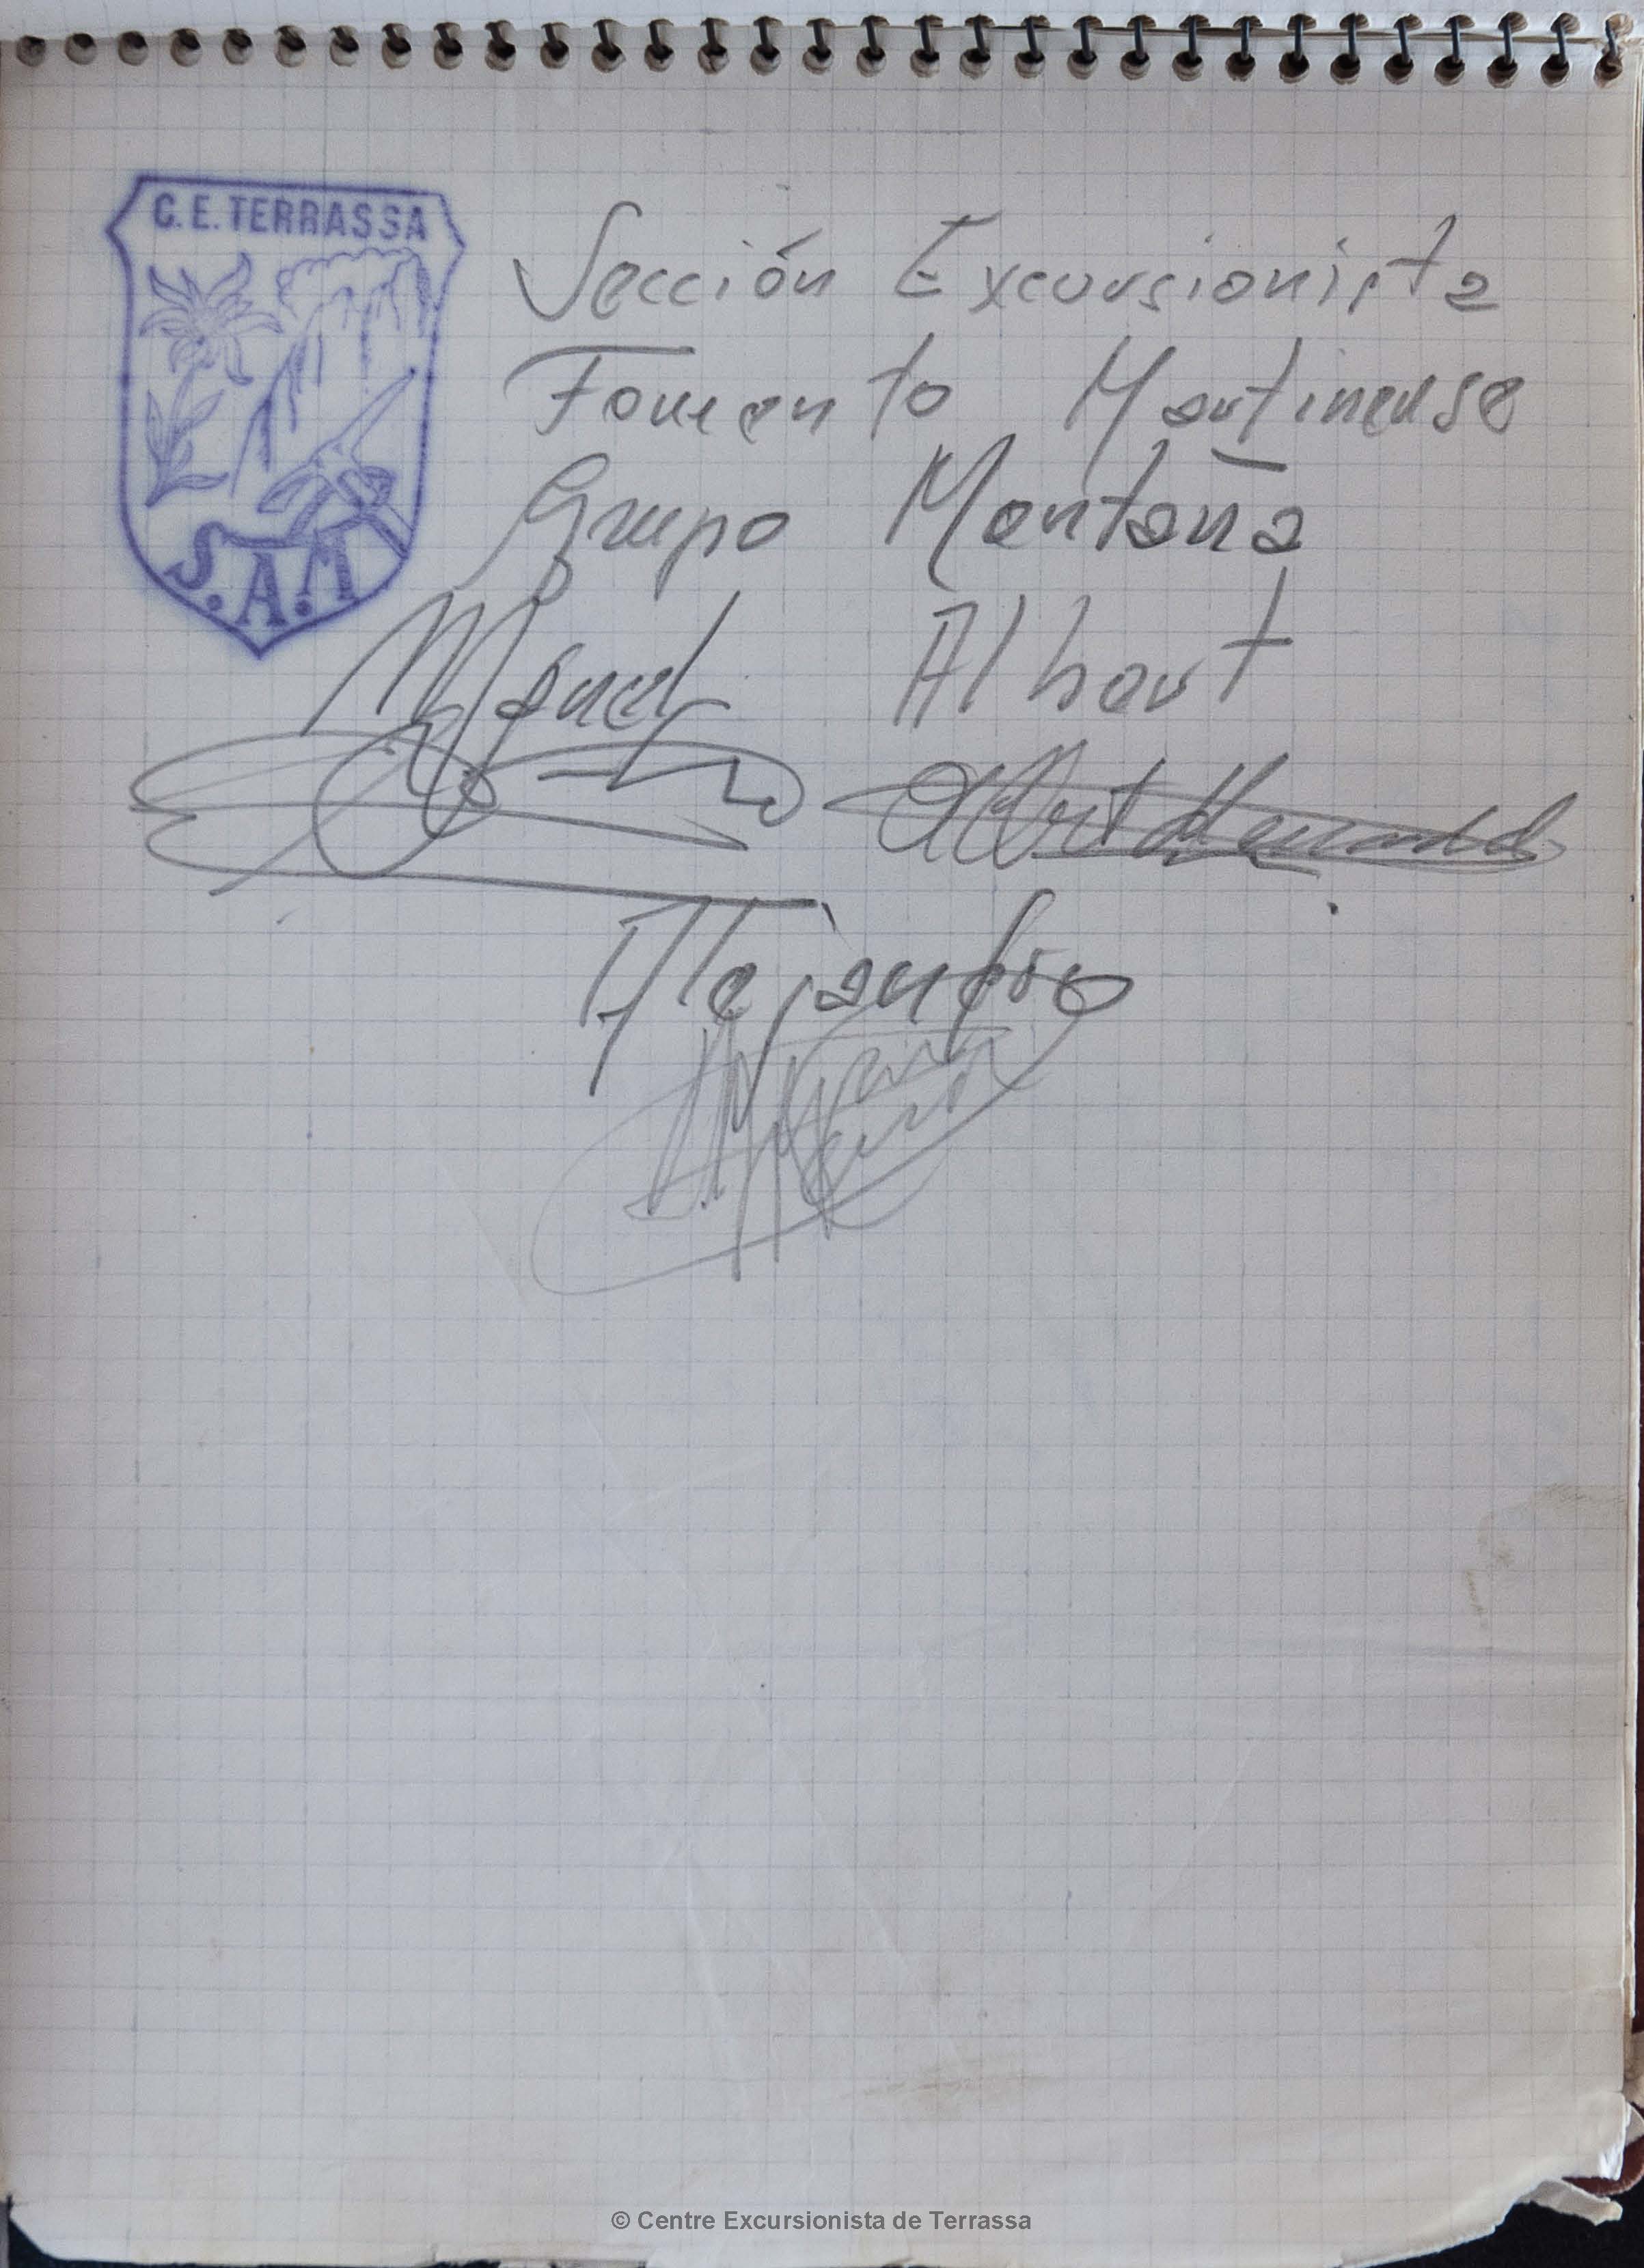 C.E. TERRASSA
S.A.M
Sección Excursionista
Fomento Martinense
Grupo Montaña
Manuel Albert
Albert
Alejandro
© Centre Excursionista de Terrassa